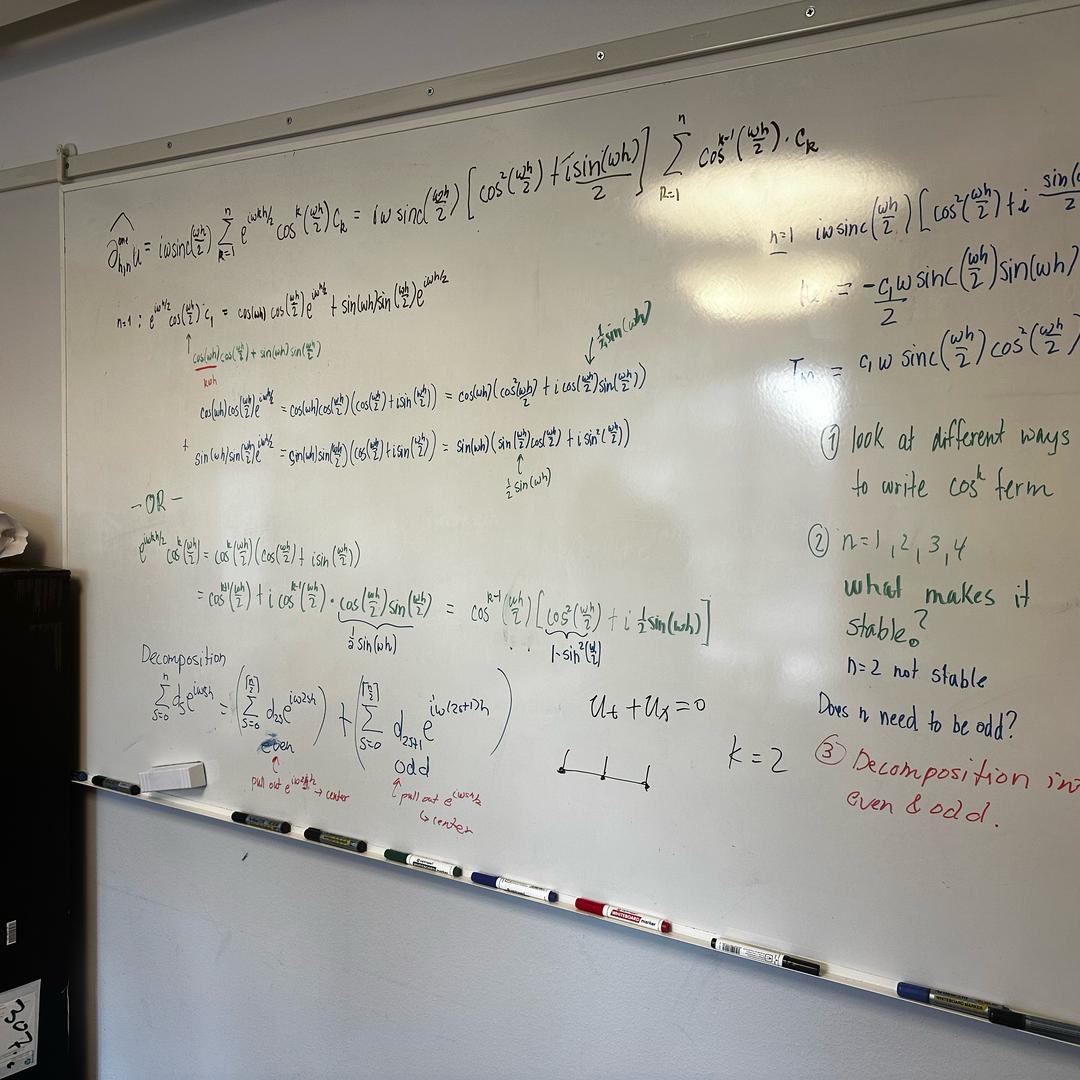 ∂̂^{one}_{h,n} u = iω sinc(ωh/2) Σ_{k=1}^{n} e^{iωkh/2} cos^k(ωh/2) c_k = iω sinc(ωh/2) [cos²(ωh/2) + i sin(ωh)/2] Σ_{k=1}^{n} cos^{k-1}(ωh/2) · c_k
n=1 : e^{iωh/2} cos(ωh/2) c_1 = cos(ωh) cos(ωh/2) e^{iωh/2} + sin(ωh) sin(ωh/2) e^{iωh/2}
cos(ωh) cos(ωh/2) + sin(ωh) sin(ωh/2)
kωh
½ sin(ωh)
cos(ωh) cos(ωh/2) e^{iωh/2} = cos(ωh) cos(ωh/2) (cos(ωh/2) + i sin(ωh/2)) = cos(ωh) (cos² ωh/2 + i cos(ωh/2) sin(ωh/2))
+ sin(ωh) sin(ωh/2) e^{iωh/2} = sin(ωh) sin(ωh/2) (cos(ωh/2) + i sin(ωh/2)) = sin(ωh) (sin(ωh/2) cos(ωh/2) + i sin²(ωh/2))
½ sin(ωh)
- OR -
e^{iωkh/2} cos^k(ωh/2) = cos^k(ωh/2) (cos(ωh/2) + i sin(ωh/2))
= cos^{k+1}(ωh/2) + i cos^{k-1}(ωh/2) · cos(ωh/2) sin(ωh/2) = cos^{k-1}(ωh/2) [cos²(ωh/2) + i ½ sin(ωh)]
½ sin(ωh)
1-sin²(ωh/2)
Decomposition
Σ_{s=0}^{n} d_s e^{iωsh} = (Σ_{s=0}^{⌈n/2⌉} d_{2s} e^{iω2sh}) + (Σ_{s=0}^{⌈n/2⌉} d_{2s+1} e^{iω(2s+1)h})
even
odd
pull out → center
pull out e^{iωsh/2}
↳ center
u_t + u_x = 0
k = 2
n=1 iω sinc(ωh/2) [cos²(ωh/2) + i sin(
= -c_1ω/2 sinc(ωh/2) sin(ωh)
Im = c_1 ω sinc(ωh/2) cos²(ωh/2)
① look at different ways
to write cos^k term
② n=1, 2, 3, 4
what makes it
stable?
n=2 not stable
Does n need to be odd?
③ Decomposition in
even & odd.